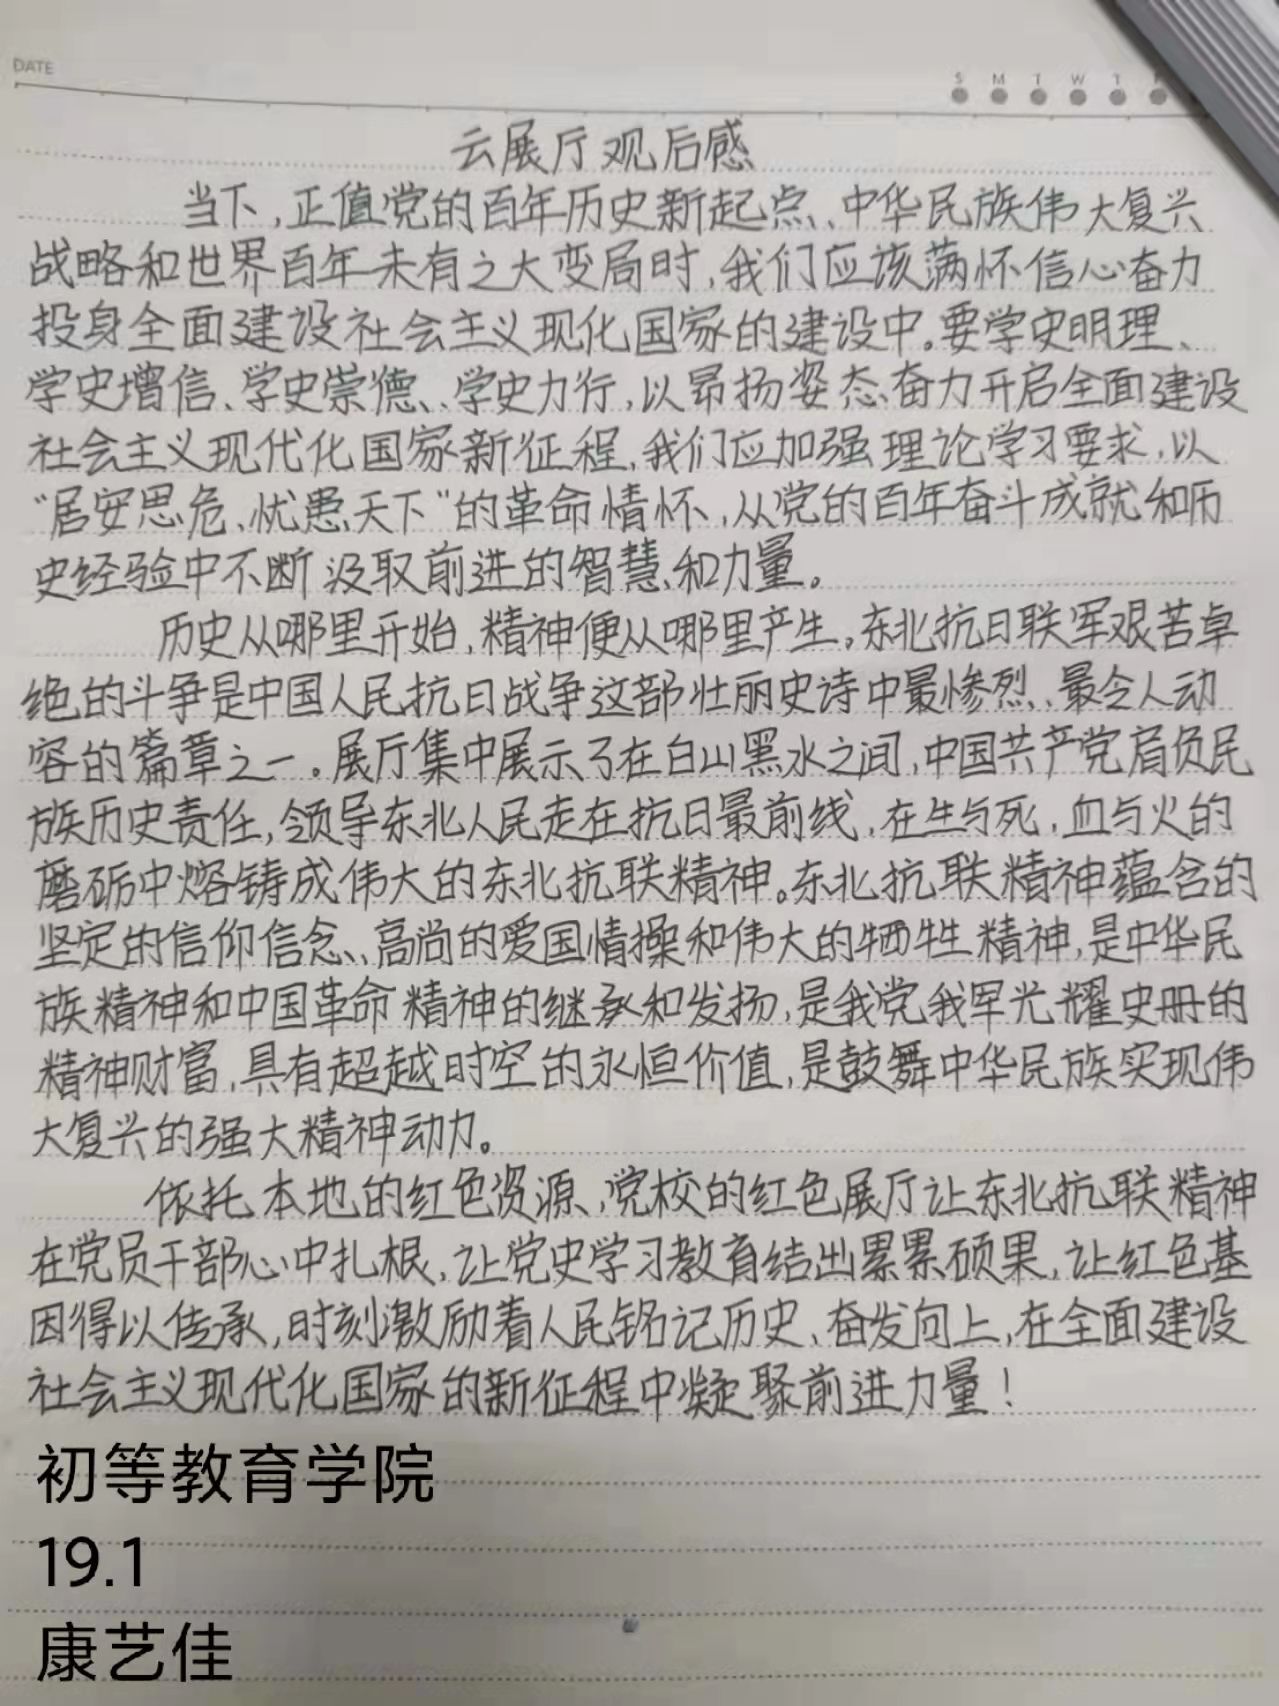 DATE
S M T W T F
云展厅观后感
当下,正值党的百年历史新起点、中华民族伟大复兴
战略和世界百年未有之大变局时,我们应该满怀信心奋力
投身全面建设社会主义现化国家的建设中。要学史明理、
学史增信、学史崇德、学史力行,以昂扬姿态奋力开启全面建设
社会主义现代化国家新征程,我们应加强理论学习要求,以
“居安思危、忧患天下”的革命情怀,从党的百年奋斗成就和历
史经验中不断汲取前进的智慧和力量。
历史从哪里开始,精神便从哪里产生。东北抗日联军艰苦卓
绝的斗争是中国人民抗日战争这部壮丽史诗中最惨烈、最令人动
容的篇章之一。展厅集中展示了在白山黑水之间,中国共产党肩负民
族历史责任,领导东北人民走在抗日最前线,在生与死,血与火的
磨砺中熔铸成伟大的东北抗联精神。东北抗联精神蕴含的
坚定的信仰信念、高尚的爱国情操和伟大的牺牲精神,是中华民
族精神和中国革命精神的继承和发扬,是我党我军光耀史册的
精神财富,具有超越时空的永恒价值,是鼓舞中华民族实现伟
大复兴的强大精神动力。
依托本地的红色资源,党校的红色展厅让东北抗联精神
在党员干部心中扎根,让党史学习教育结出累累硕果,让红色基
因得以传承,时刻激励着人民铭记历史、奋发向上,在全面建设
社会主义现代化国家的新征程中凝聚前进力量!
初等教育学院
19.1
康艺佳